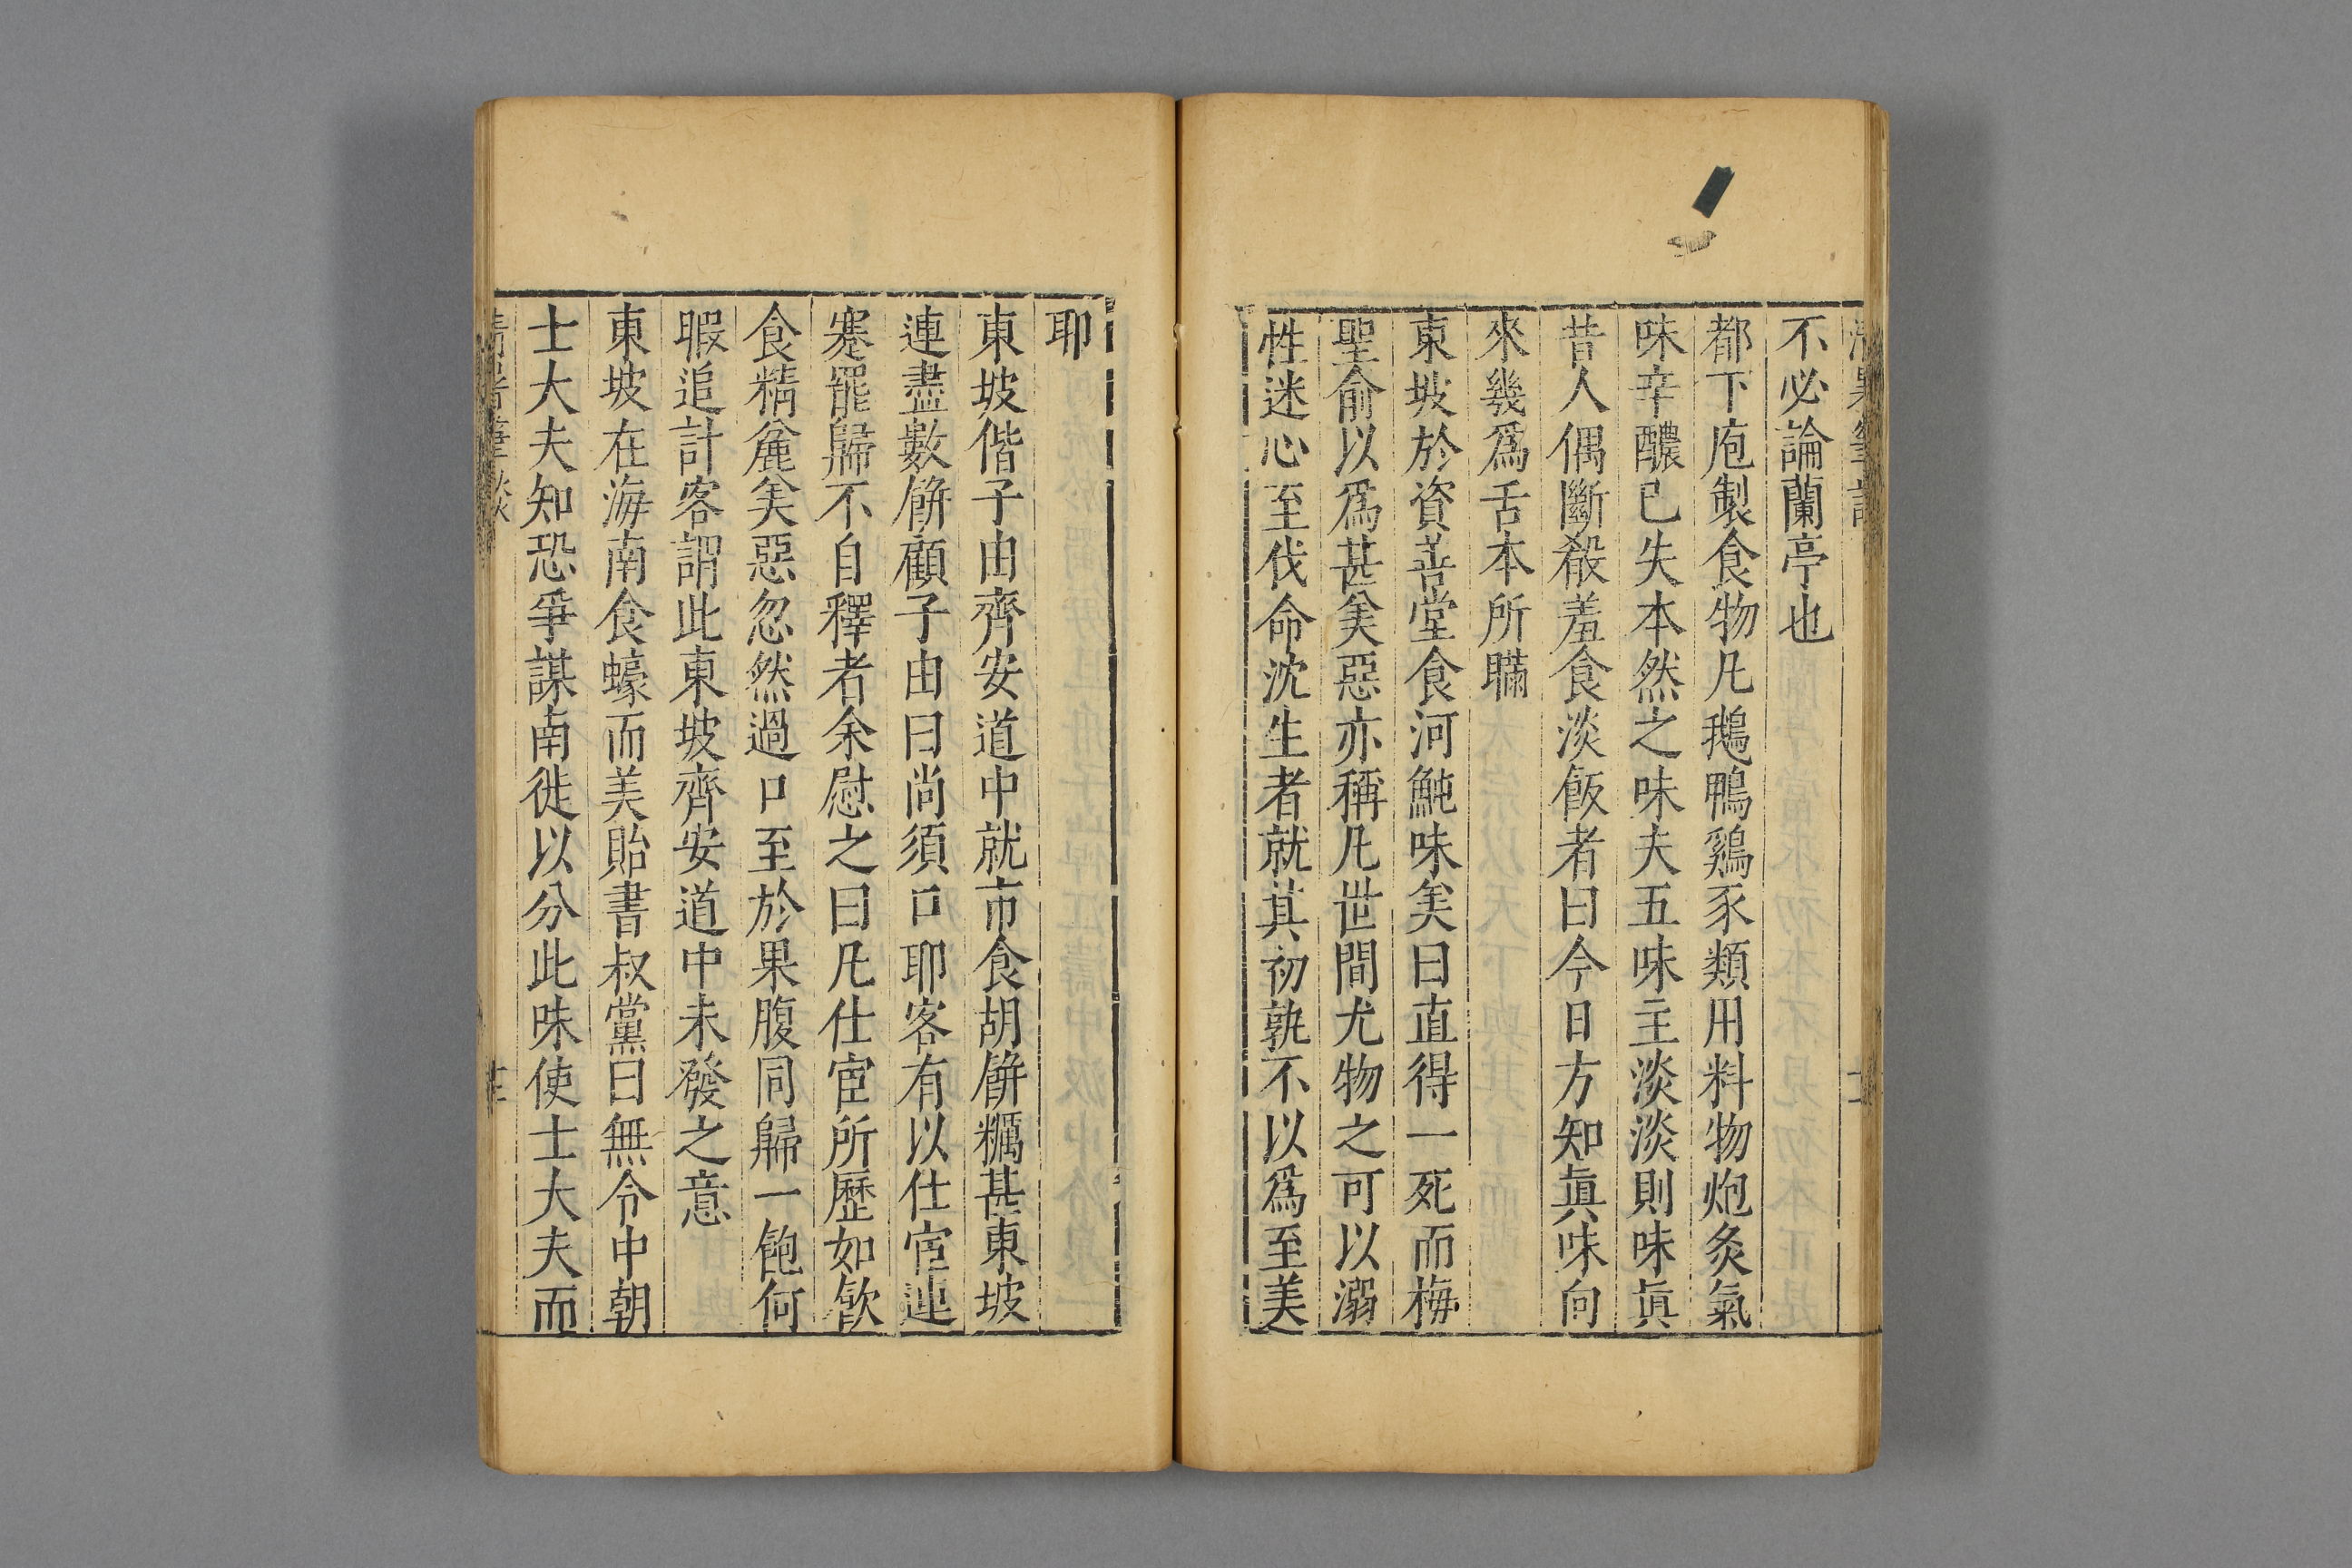 不必論蘭亭也
都下庖製食物凡鵝鴨鷄豕類用料物炮炙氣
味辛醲已失本然之味夫五味主淡淡則味眞
昔人偶斷殽羞食淡飯者曰今日方知眞味向
來幾爲舌本所瞞
東坡於資善堂食河魨味美曰直得一死而梅
聖俞以爲甚美惡亦稱凡世間尤物之可以溺
性迷心至伐命沈生者就其初孰不以爲至美
耶
東坡偕子由齊安道中就市食胡餅糲甚東坡
連盡數餅顧子由曰尚須口耶客有以仕宦連
蹇罷歸不自釋者余慰之曰凡仕宦所歷如飲
食精麄美惡忽然過口至於果腹同歸一飽何
暇追計客謂此東坡齊安道中未發之意
東坡在海南食蠔而美貽書叔黨曰無令中朝
士大夫知恐爭謀南徙以分此味使士大夫而
清暑筆談